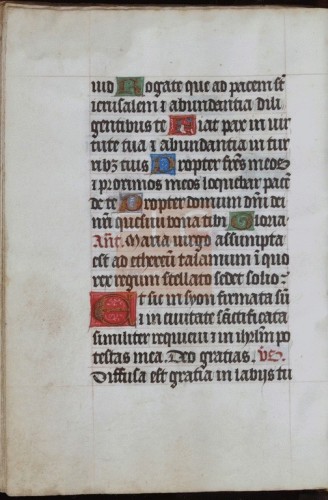 iud Rogate que ad pacem st̄
ierusalem ⁊ abundantia dili
gentibus te Fiat pax in uir
tute tua ⁊ abundantia in tur
ribꝫ tuis Propter fr̄es meos
⁊ proximos meos loquebar pacē
de te Propter domum dn̄i dei
nr̄i quesiui bona tibi Gloria
Añt. Maria virgo assumpta
est ad ethereū talamum ī quo
rex regum stellato sedet solio:
Et sic in syon firmata sū
⁊ in ciuitate sc̄tificata
similiter requieui ⁊ in ihr̄lm po
testas mea. Deo gratias. v̄s.
Diffusa est gratia in labijs tu